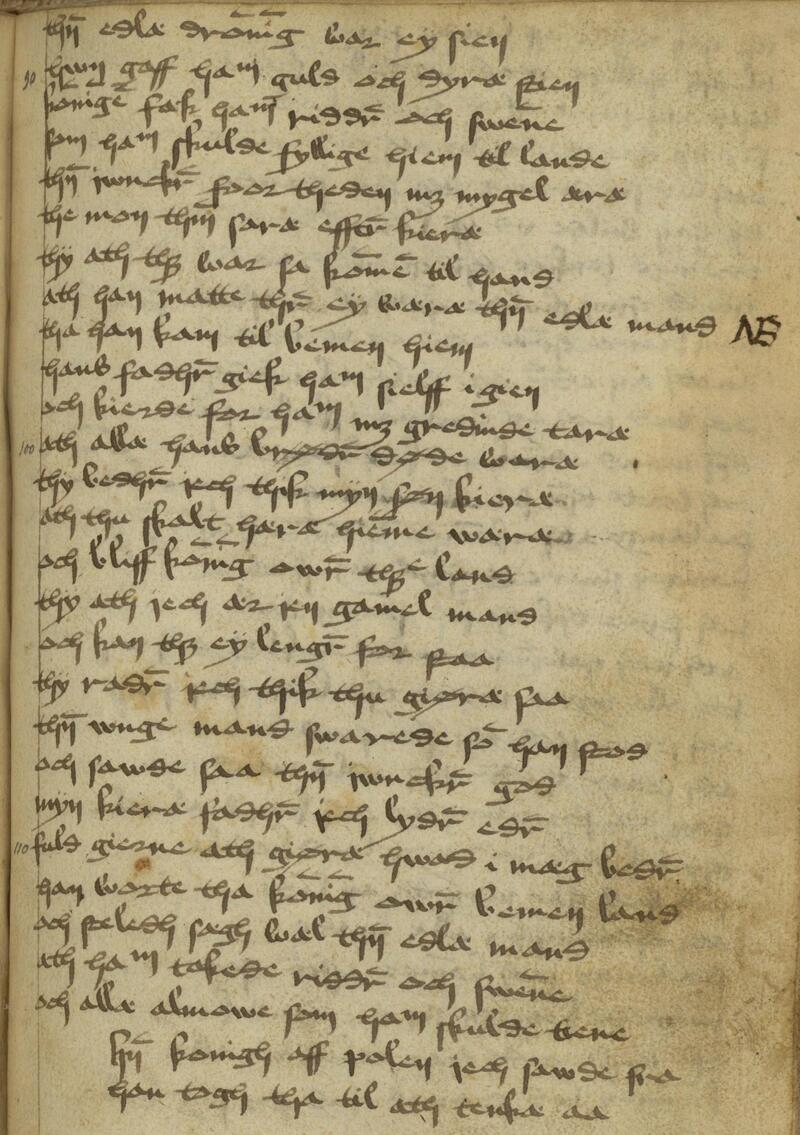 thn̄ edlæ dronīg war ey sien
90 hwn gaff ham guld och dyræ sten
konigē fæk ham riddr̄ och swēne
som ham skulde fyllige hiem til lande
thn̄ iwnckr̄ foor theden mz mygel æræ
the mon thm̄ saræ efftr̄ kieræ
thy ath thz war sa komē til hand
ath han matte thr̄ ey wæræ thn̄ edlæ mand NB
tha han kam til bemen hiem
hans fadhr̄ giek ham sielff i gien
och kierde for ham mz gredinde taræ
100 ath allæ hans brødr̄ døde waræ
thy bedhr̄ iech thik myn søn kieræ
ath thu skalt hæræ hiēme wæræ
och bliff konīg owr̄ thze land
thy ath iech ær ien gamel mand
och kan thz ey lengr̄ for staa
thy radr̄ iech thik thu giøræ saa
thn̄ wnge mand swarede sō han stod
och sawde saa thn̄ iwnckr̄ god
myn kieræ fadhr̄ iech lydr̄ edr̄
110 fuld gierne ath giøræ hwad i mæg bedr̄
han worte tha konīg owr̄ bemen land
och steledh sægh wæl thn̄ edlæ mand
ath ham takede riddr̄ och swēne
och allæ almowe som ham skulde tiene
hn̄ konigh aff polen iech sawde fra
han togh tha til ath tenkæ aa